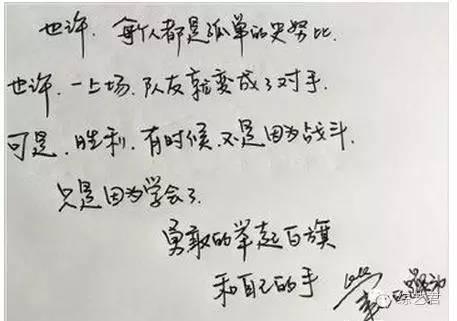 也许．每个人都是孤单的史努比．
也许．一上场．队友就变成了对手．
可是．胜利．有时候．不是因为战斗．
只是因为学会了．
勇敢的举起白旗
和自己的手
综艺君